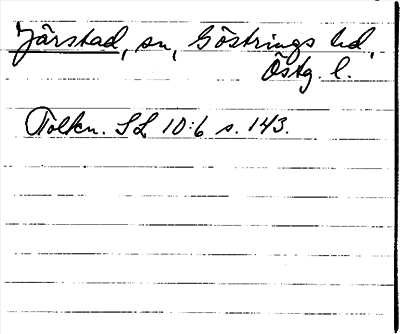 Järstad, sn, Göstrings hd,
Östg. l.
Tolkn. SL 10:6 s. 143.